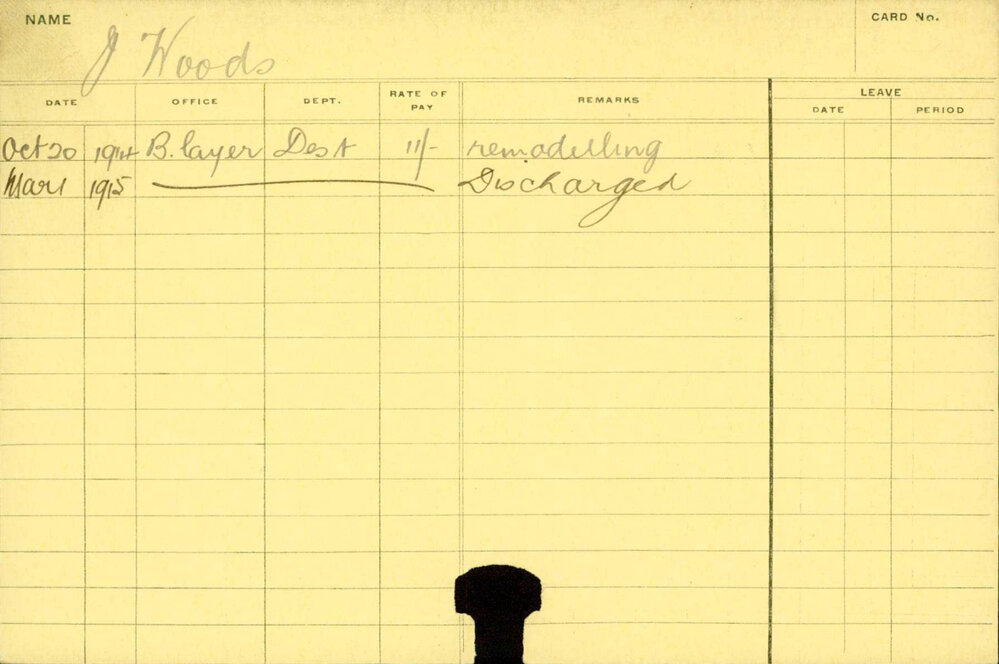 NAME
J Woods
CARD No.
DATE OFFICE DEPT. RATE OF PAY REMARKS LEAVE
DATE PERIOD
Oct 20 1914 B. layer Dest 11/- remodelling
Mar 1 1915 Discharged